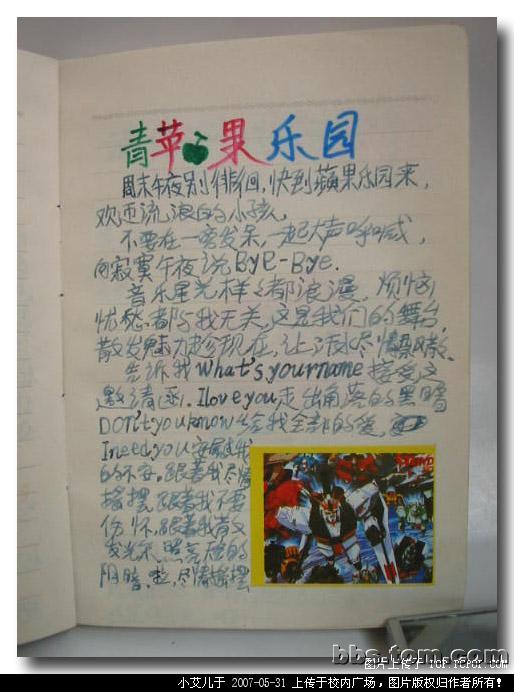 青苹果乐园
周末午夜别徘徊,快到蘋果乐园来,
欢迎流浪的小孩,
不要在一旁发呆,一起大声呼喊,
向寂寞午夜说Bye-Bye.
音乐星光样样都浪漫,烦恼
忧愁都与我无关,这是我们的舞台,
散发魅力趁现在,让汗水尽情
告诉我what's yourname 接受这
邀请函.I love you 走出角落的黑暗
DON't you know 给我全部的爱,
I need you 安慰我
的不安.跟着我尽情
摇摆.跟着我不要
伤怀.跟着我散
发光采.照亮你的
阴暗.尽情摇摆
bbs.tom.com
图片上传于 ToF.Tcfof.com
小艾儿于 2007-05-31 上传于校内广场,图片版权归作者所有!